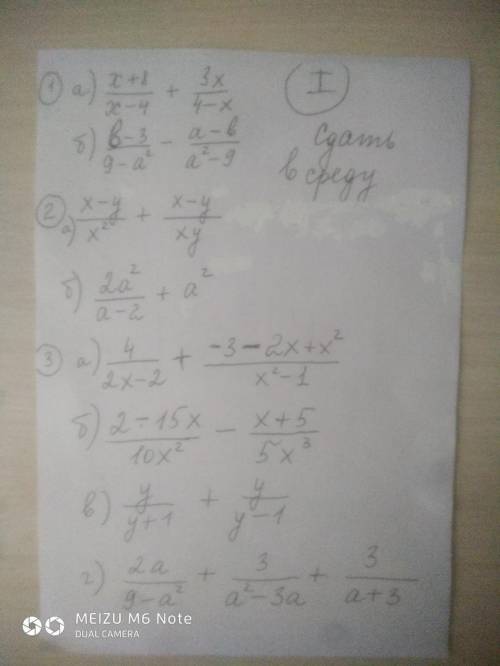 ① а) (x+8)/(x-4) + 3x/(4-x)
I
б) (b-3)/(9-a²) - (a-b)/(a²-9)
Сдать
в среду
② а) (x-y)/x² + (x-y)/(xy)
б) 2a²/(a-2) + a²
③ а) 4/(2x-2) + (-3-2x+x²)/(x²-1)
б) (2-15x)/(10x²) - (x+5)/(5x³)
в) y/(y+1) + y/(y-1)
г) 2a/(9-a²) + 3/(a²-3a) + 3/(a+3)
MEIZU M6 Note
DUAL CAMERA